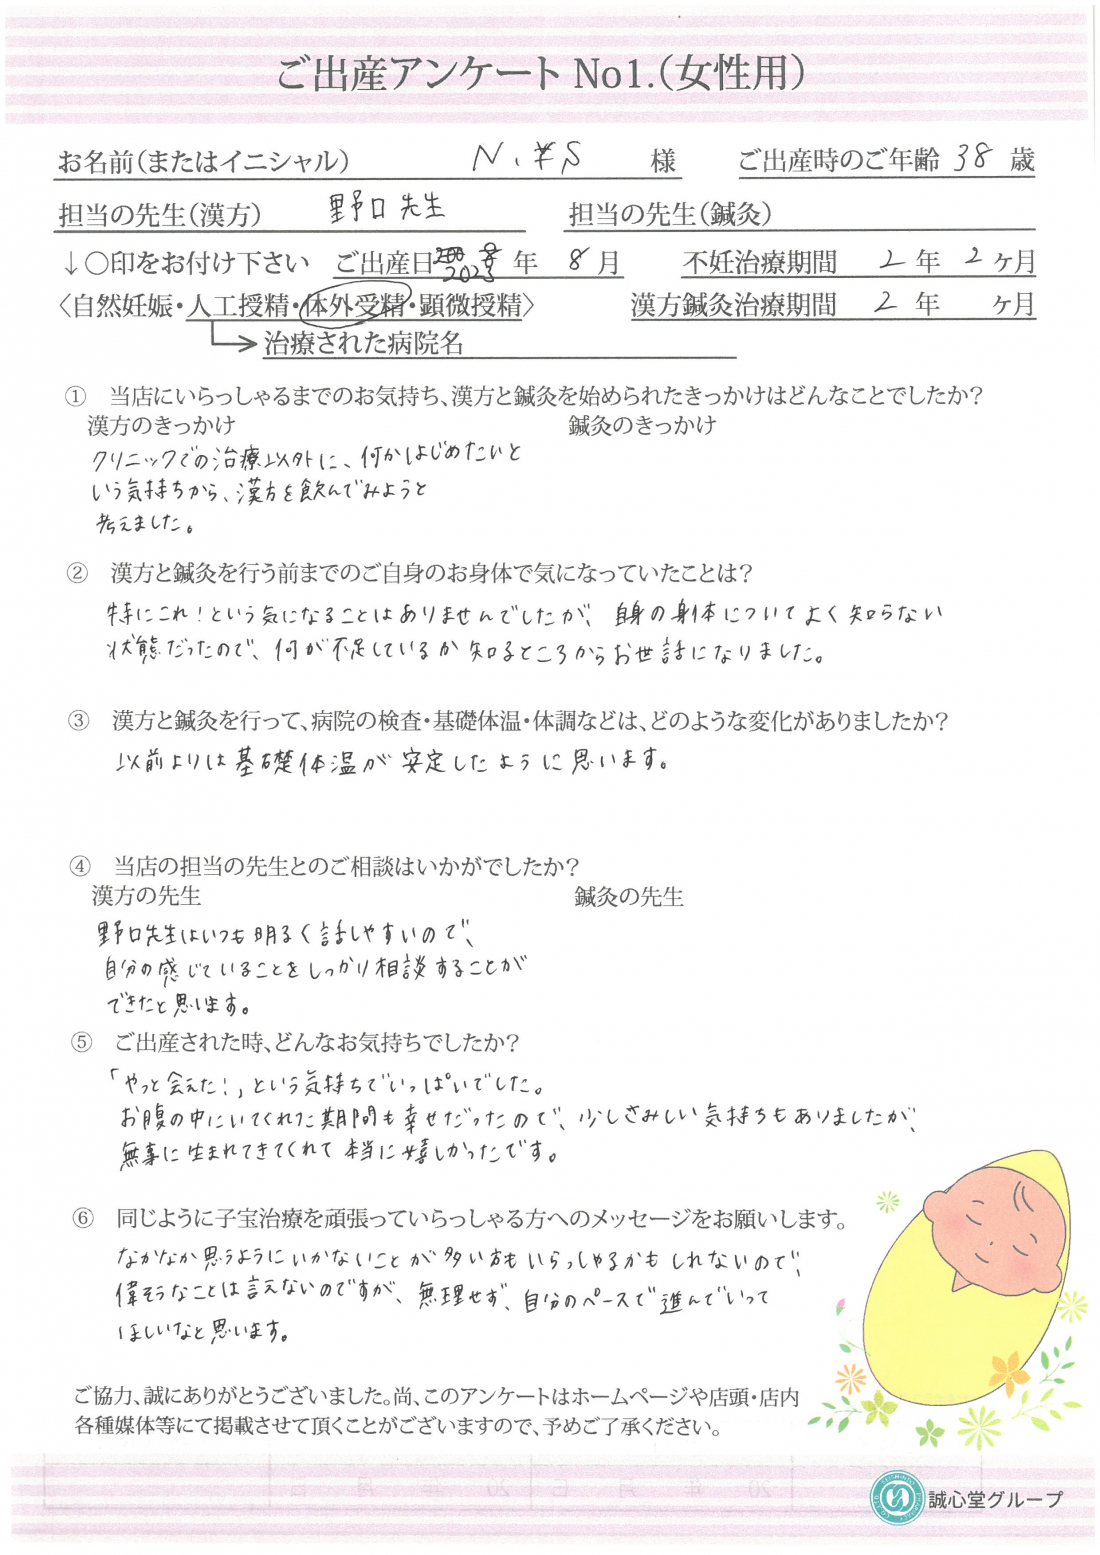 ご出産アンケート No1.(女性用)
お名前(またはイニシャル) N. S 様 ご出産時のご年齢 38 歳
担当の先生(漢方) 野口 先生 担当の先生(鍼灸)
↓○印をお付け下さい ご出産日 2023 年 8 月 不妊治療期間 2 年 2 ヶ月
〈自然妊娠・人工授精・体外受精・顕微授精〉 漢方鍼灸治療期間 2 年 ヶ月
治療された病院名
① 当店にいらっしゃるまでのお気持ち、漢方と鍼灸を始められたきっかけはどんなことでしたか?
漢方のきっかけ 鍼灸のきっかけ
クリニックでの治療以外に、何かはじめたいと
いう気持ちから、漢方を飲んでみようと
考えました。
② 漢方と鍼灸を行う前までのご自身のお身体で気になっていたことは?
特にこれ!という気になることはありませんでしたが、自身の身体についてよく知らない
状態だったので、何が不足しているか知るところからお世話になりました。
③ 漢方と鍼灸を行って、病院の検査・基礎体温・体調などは、どのような変化がありましたか?
以前よりは基礎体温が安定したように思います。
④ 当店の担当の先生とのご相談はいかがでしたか?
漢方の先生 鍼灸の先生
野口先生はいつも明るく話しやすいので、
自分の感じていることをしっかり相談することが
できたと思います。
⑤ ご出産された時、どんなお気持ちでしたか?
「やっと会えた!」という気持ちでいっぱいでした。
お腹の中にいてくれた期間も幸せだったので、少しさみしい気持ちもありましたが、
無事に生まれてきてくれて本当に嬉しかったです。
⑥ 同じように子宝治療を頑張っていらっしゃる方へのメッセージをお願いします。
なかなか思うようにいかないことが多い方もいらっしゃるかもしれないので、
偉そうなことは言えないのですが、無理せず、自分のペースで進んでいって
ほしいなと思います。
ご協力、誠にありがとうございました。尚、このアンケートはホームページや店頭・店内
各種媒体等にて掲載させて頂くことがございますので、予めご了承ください。
誠心堂グループ